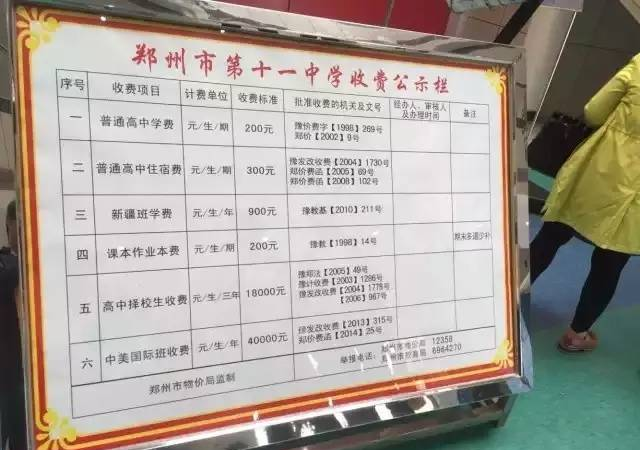 郑州市第十一中学收费公示栏
序号 收费项目 计费单位 收费标准 批准收费的机关及文号 经办人、审核人及办理时间 备注
一 普通高中学费 元/生/期 200元 豫价费字【1998】269号
郑价【2002】9号
二 普通高中住宿费 元/生/期 300元 豫发改收费【2004】1730号
郑价费函【2005】69号
郑价费函【2008】102号
三 新疆班学费 元/生/年 900元 豫教基【2010】211号
四 课本作业本费 元/生/期 200元 豫教【1998】14号 期末多退少补
五 高中择校生收费 元/生/三年 18000元 豫郑法【2005】49号
豫计收费【2003】1286号
豫发改收费【2004】1778号
【2006】967号
六 中美国际班收费 元/生/年 40000元 综发改收费【2013】315号
郑价费函【2014】25号
郑州市物价局监制
举报电话: 郑州市物价局 12358
郑州市教育局 6964270